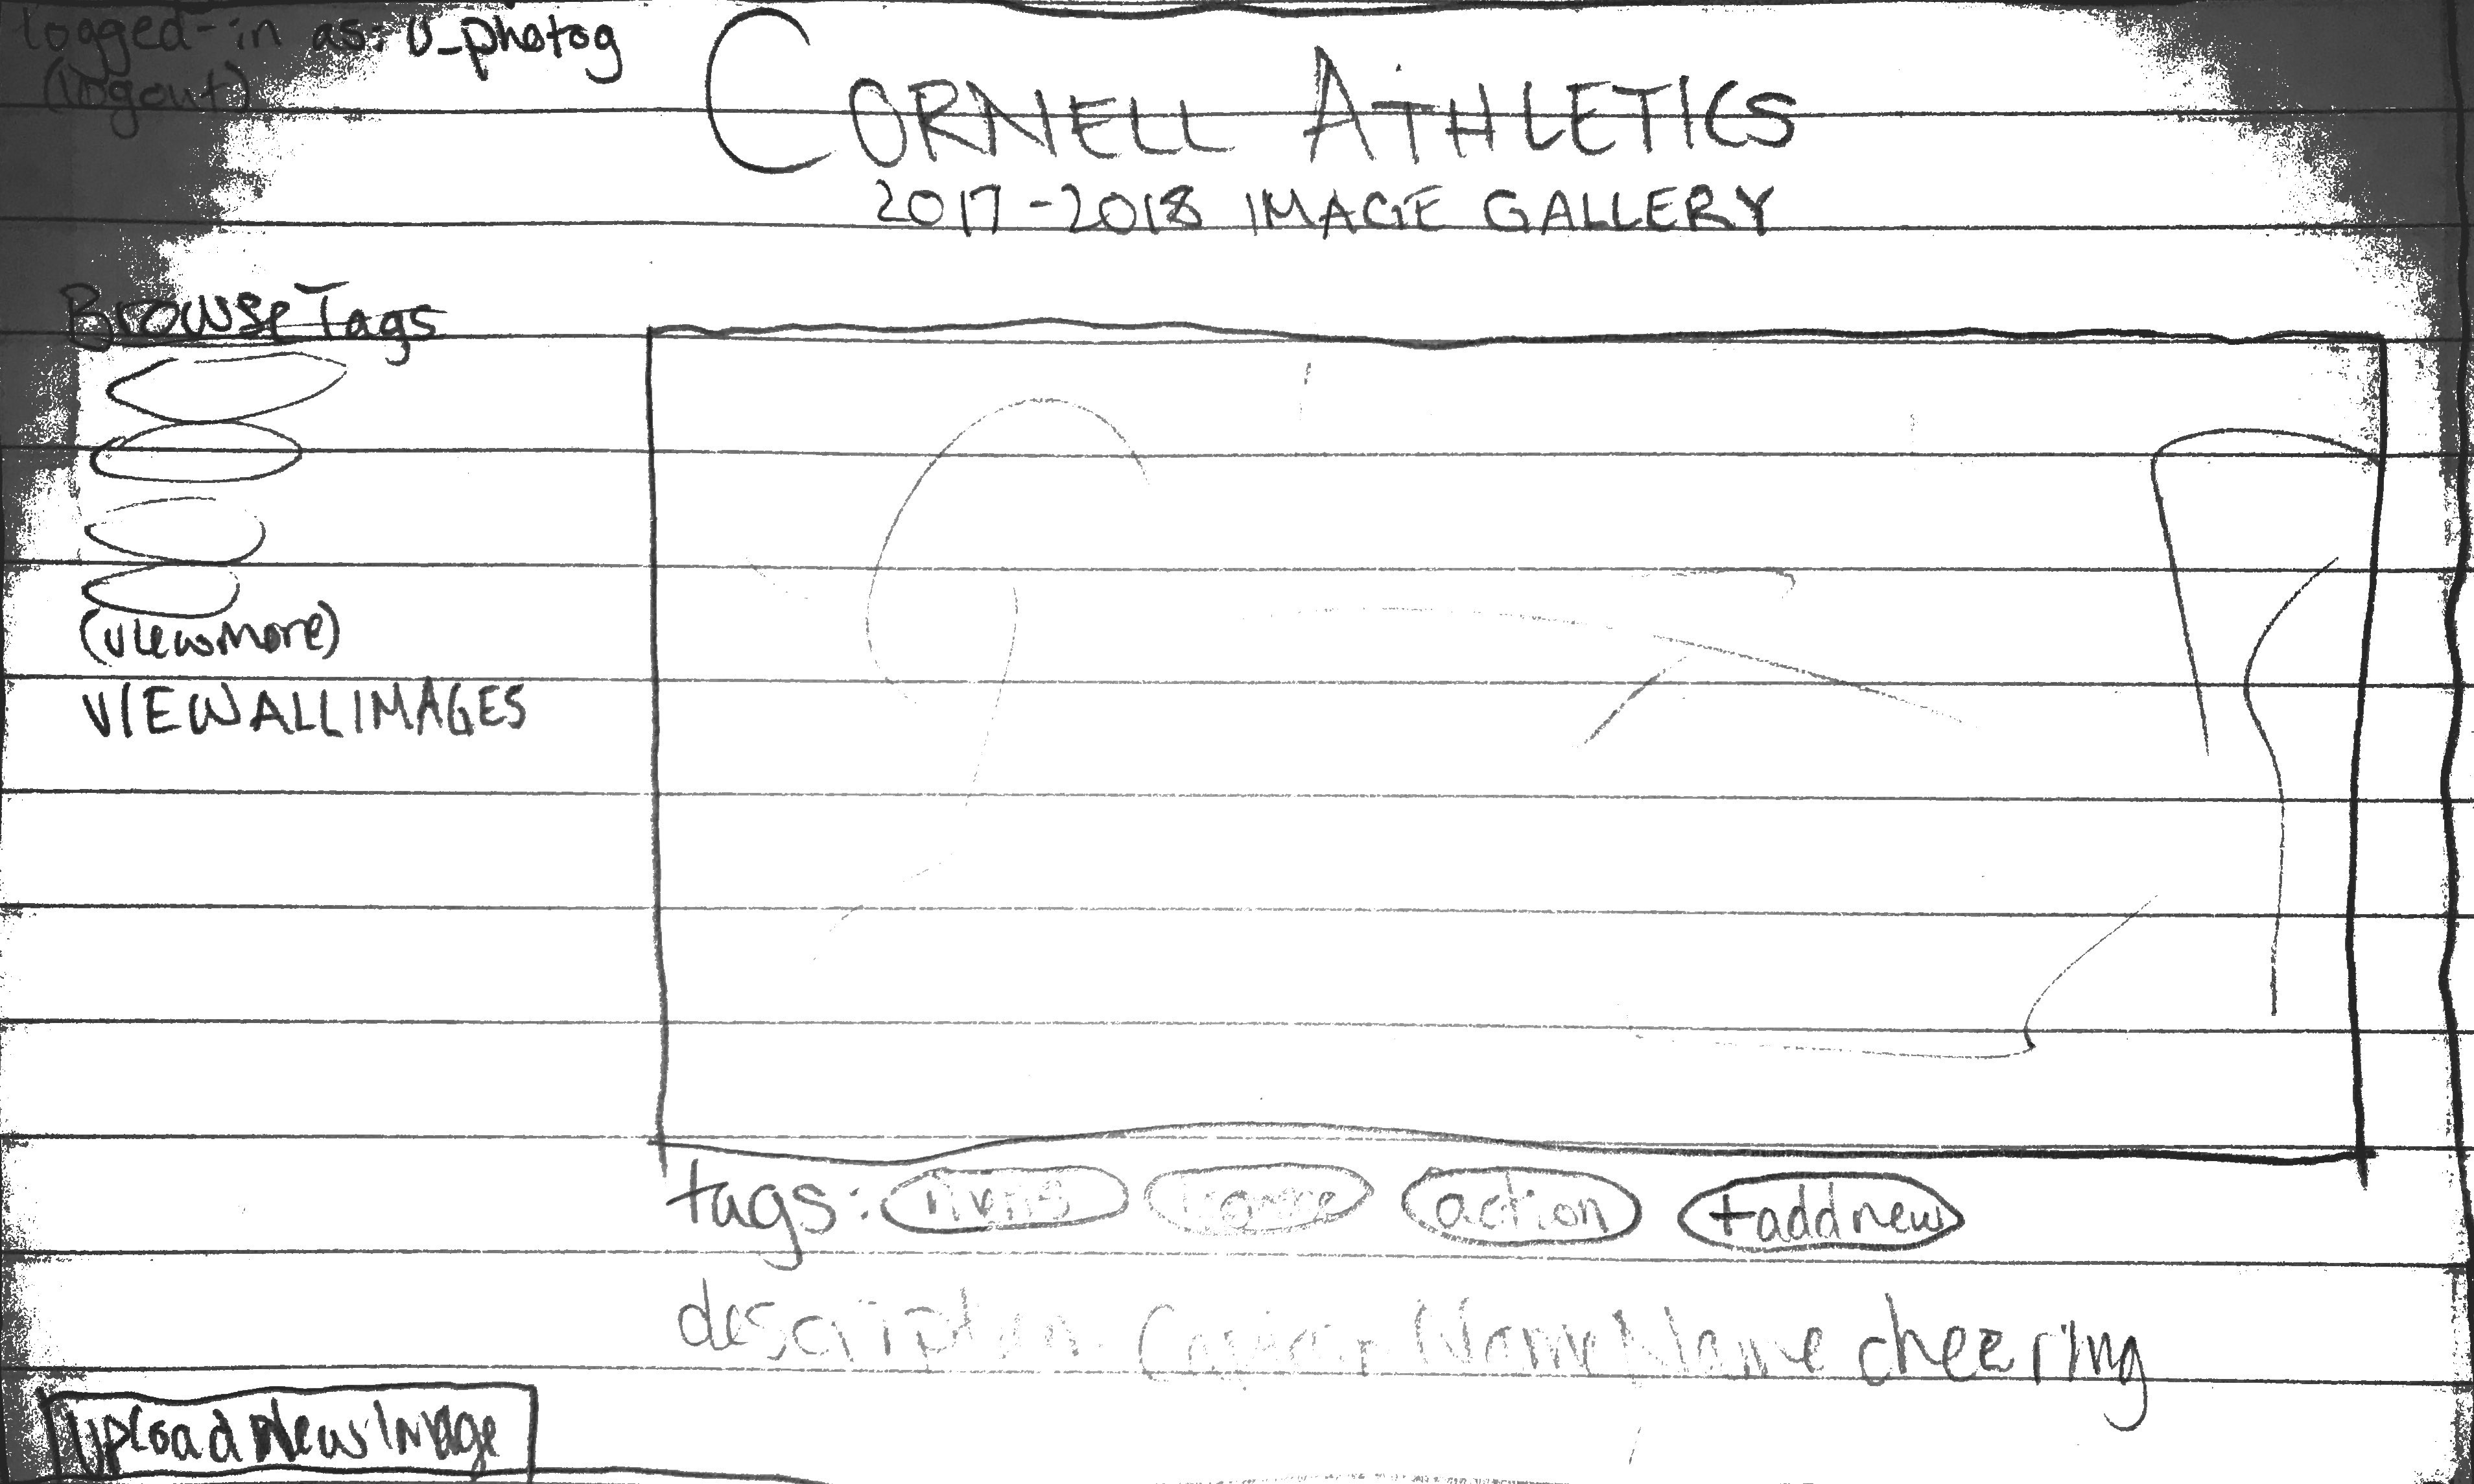 logged-in as: v_photog
(logout)
CORNELL ATHLETICS
2017-2018 IMAGE GALLERY
Browse Tags
(view more)
VIEW ALL IMAGES
tags: action +add new
description: Name Name cheering
Upload New Image